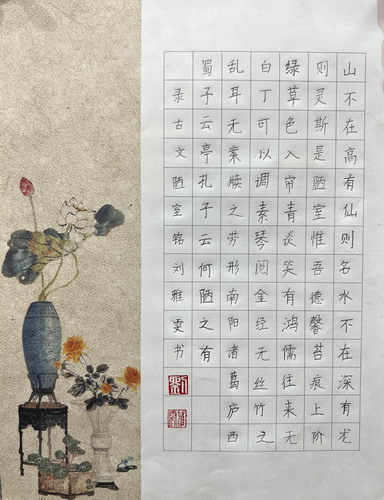 山不在高有仙则名水不在深有龙
则灵斯是陋室惟吾德馨苔痕上阶
绿草色入帘青谈笑有鸿儒往来无
白丁可以调素琴阅金经无丝竹之
乱耳无案牍之劳形南阳诸葛庐西
蜀子云亭孔子云何陋之有
录古文陋室铭刘雅雯书